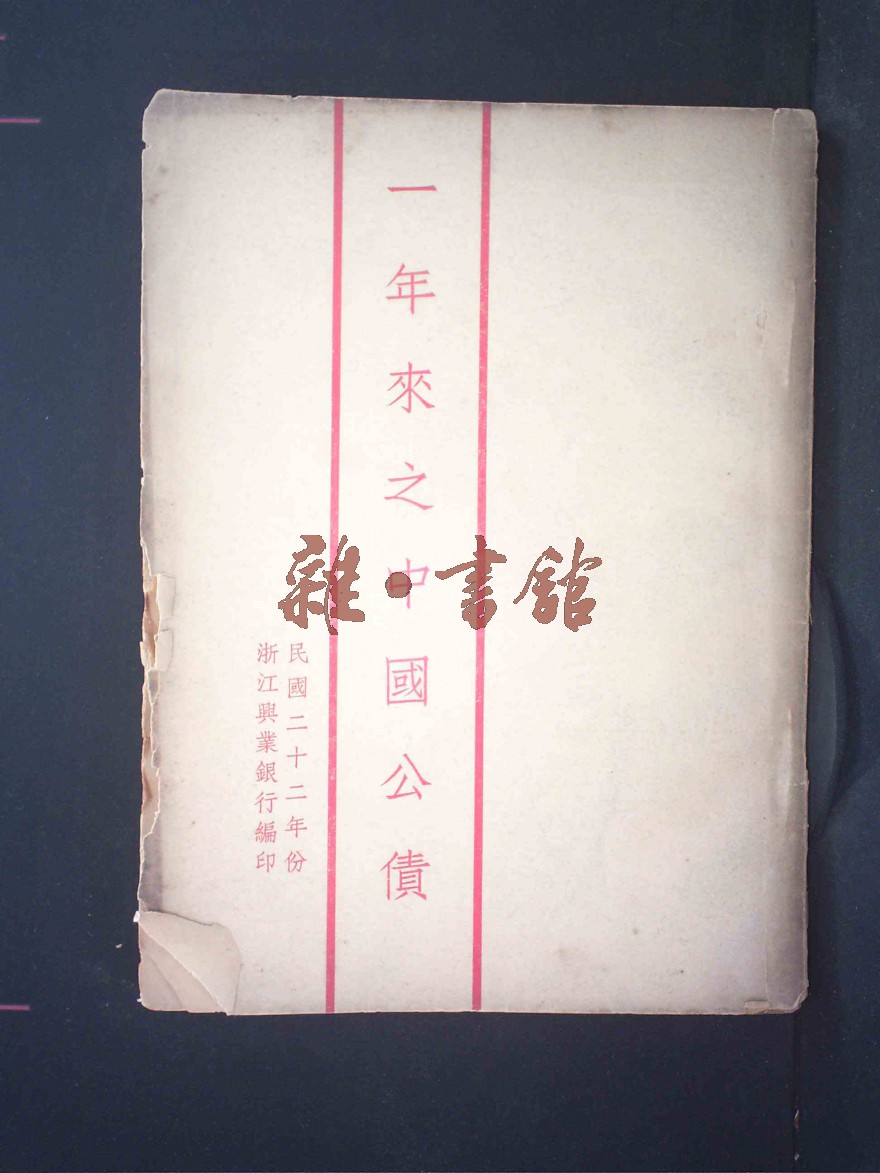 一年來之中國公債
民國二十二年份
浙江興業銀行編印
雜·書館